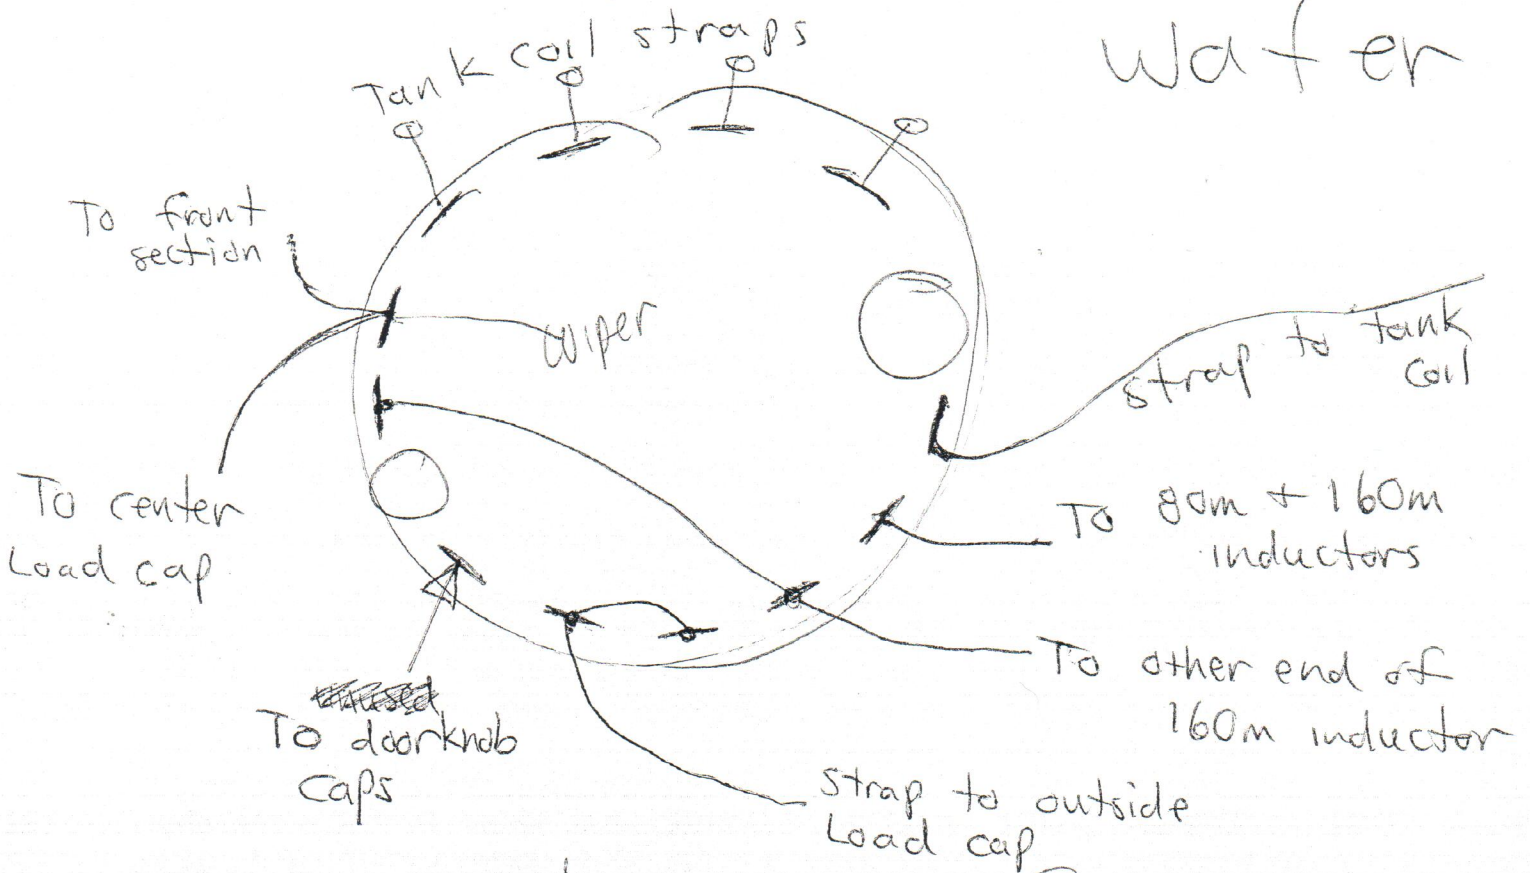 Tank coil straps
Wafer
To front
section
wiper
strap to tank
coil
To center
Load cap
To 80m + 160m
inductors
To other end of
160m inductor
To doorknob
caps
strap to outside
Load cap